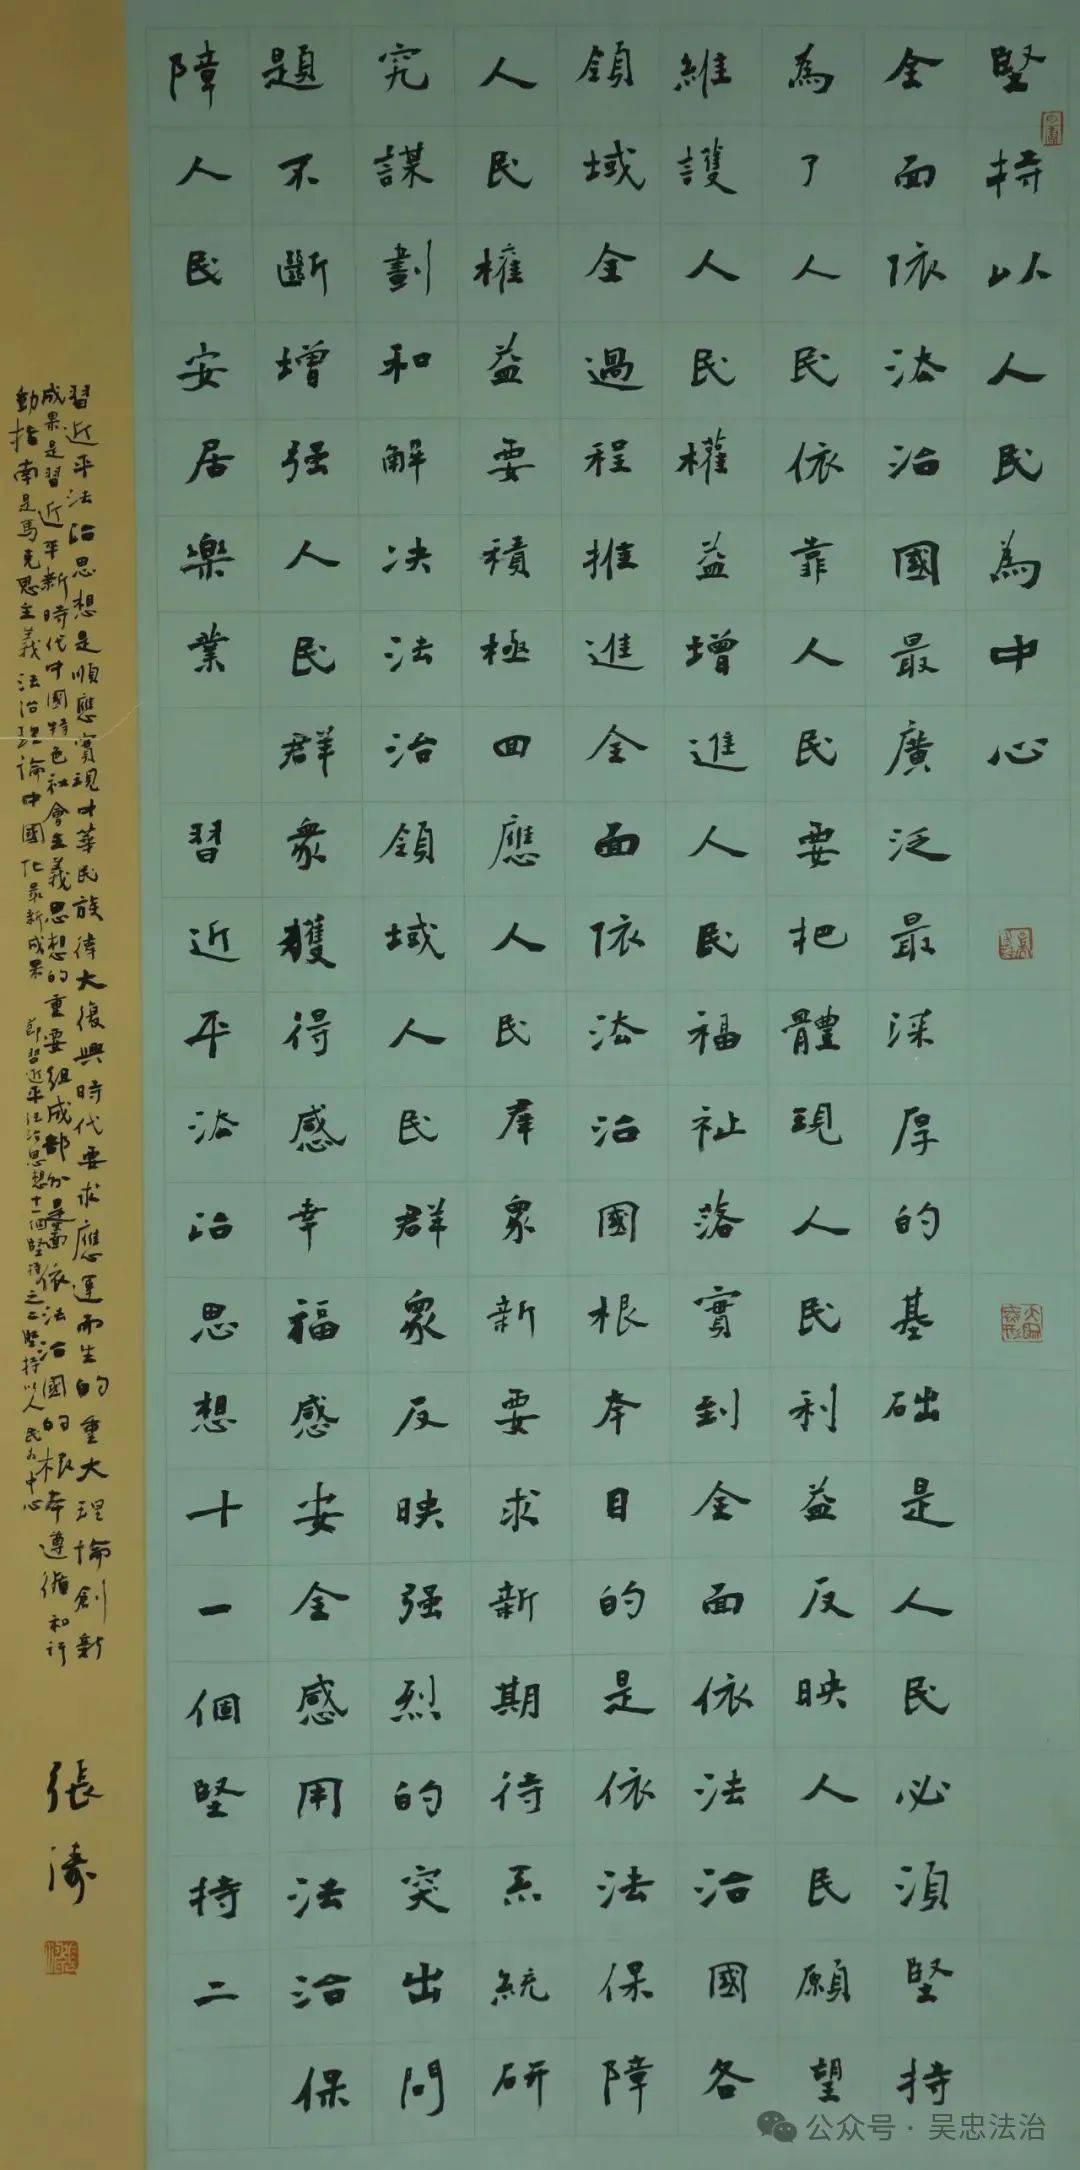 堅持以人民為中心
全面依法治國最廣泛最深厚的基础是人民必須堅持
為了人民依靠人民要把體現人民利益反映人民願望
維護人民權益增進人民福祉落實到全面依法治國各
領域全過程推進全面依法治國根本目的是依法保障
人民權益要積極回應人民群衆新要求新期待系統研
究謀劃和解决法治領域人民群衆反映强烈的突出問
題不斷增强人民群衆獲得感幸福感安全感用法治保
障人民安居樂業 習近平法治思想十一個堅持二
習近平法治思想是順應實現中華民族偉大復興時代要求應運而生的重大理論創新
成果是習近平新時代中國特色社會主義思想的重要組成部分是全面依法治國的根本遵循和行
動指南是馬克思主義法治理論中國化最新成果 節習近平法治思想十一個堅持之二堅持以人民為中心
張濤
公众号·吴忠法治